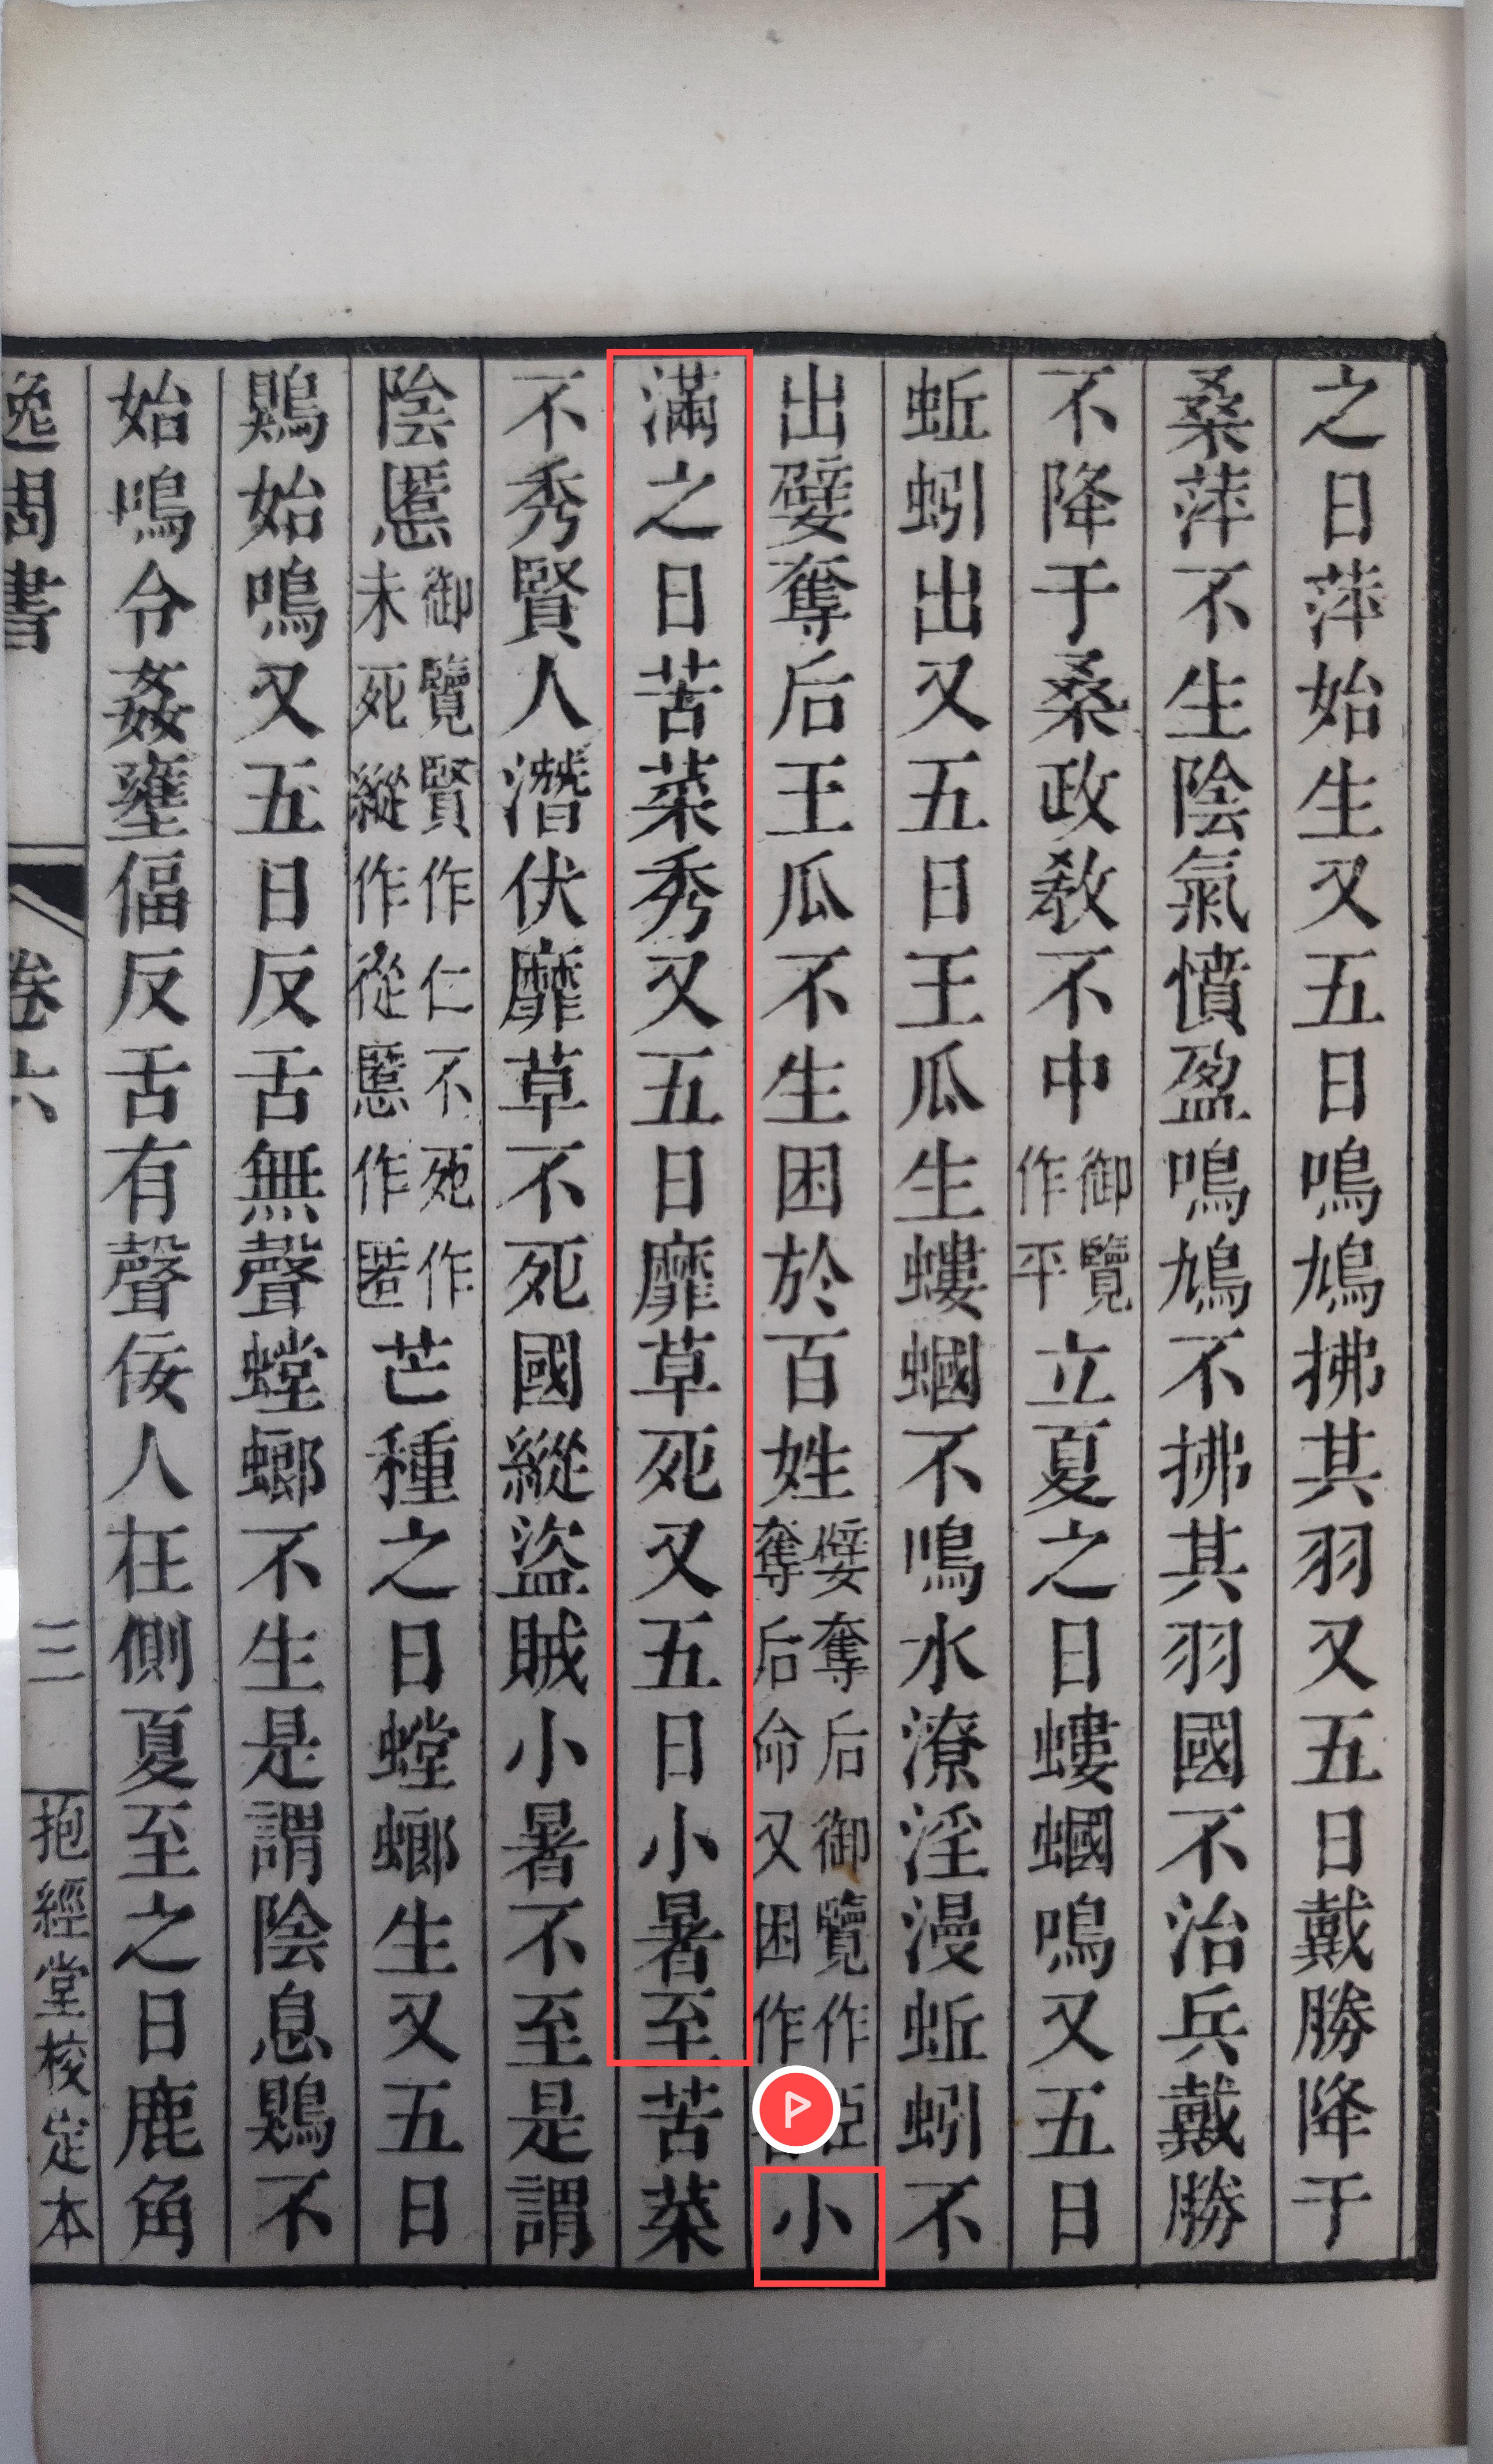 之日萍始生又五日鳴鳩拂其羽又五日戴勝降于
桑萍不生陰氣憤盈鳴鳩不拂其羽國不治兵戴勝
不降于桑政敎不中御覽作平立夏之日螻蟈鳴又五日
蚯蚓出又五日王瓜生螻蟈不鳴水潦淫漫蚯蚓不
出嬖奪后王瓜不生困於百姓嬖奪后御覽作臣奪后命又困作小
滿之日苦菜秀又五日靡草死又五日小暑至苦菜
不秀賢人潛伏靡草不死國縱盜賊小暑不至是謂
陰慝御覽賢作仁不死作未死縱作從慝作匿芒種之日螳螂生又五日
鶪始鳴又五日反舌無聲螳螂不生是謂陰息鶪不
始鳴令姦壅偪反舌有聲佞人在側夏至之日鹿角
逸周書 卷六 三 抱經堂校定本